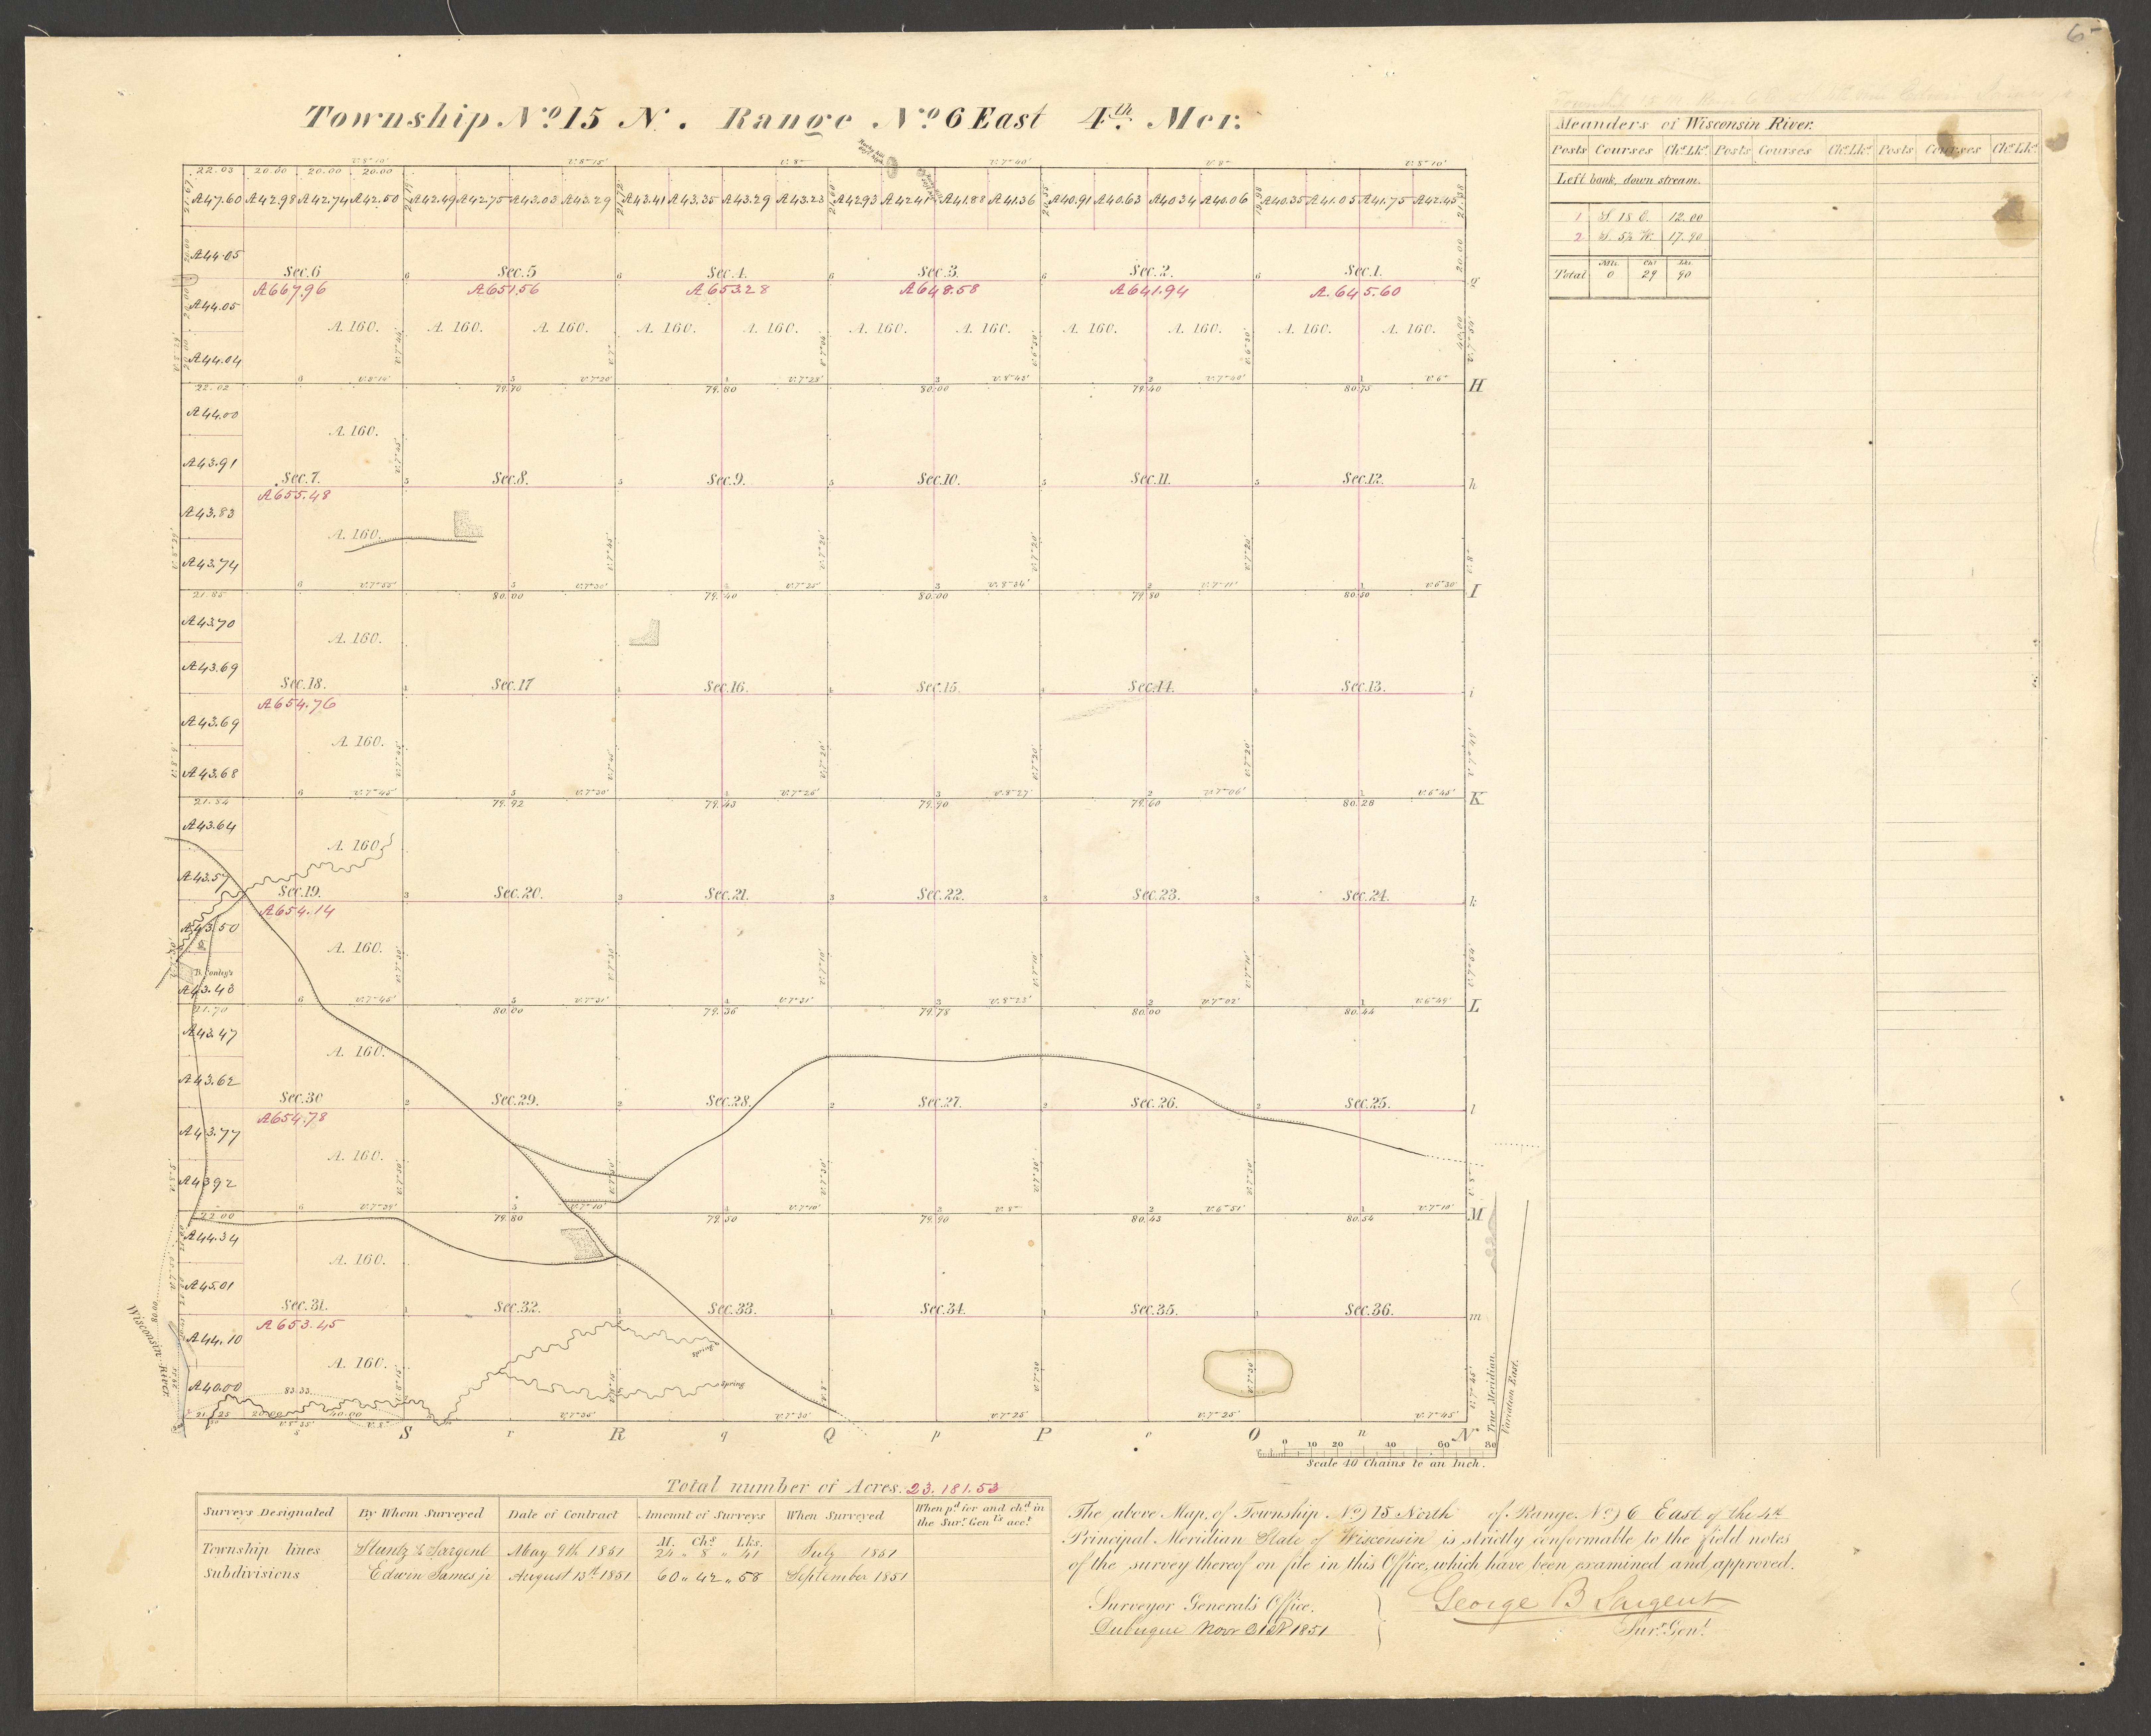 6
Township No 15 N. Range No 6 East 4th Mer:
Meanders of Wisconsin River.
Posts Courses Chs Lks Posts Courses Chs Lks Posts Courses Chs Lks
Left bank, down stream.
1 S 18 E. 12.00
2 17.90
Mls. Chs Lks.
Total 0 29 90
22.03 20.00 20.00 20.00
A47.60 A42.98 A42.74 A42.50 A42.49 A42.75 A43.03 A43.29 A43.41 A43.35 A43.29 A43.23 A42.93 A42.41 A41.88 A41.36 A40.91 A40.63 A40.34 A40.06 A40.35 A41.05 A41.75 A42.45
A44.05
Sec.6 Sec.5 Sec.4. Sec.3. Sec.2. Sec.1.
A667.96 A651.56 A653.28 A648.58 A641.94 A.645.60 g
A44.05
A. 160. A. 160. A. 160. A. 160. A. 160. A. 160. A. 160. A. 160. A. 160. A. 160. A. 160.
A44.04
22.02 79.70 79.80 80.00 79.40 80.75 H
A44.00
A. 160.
A43.91
Sec.7. Sec.8. Sec.9. Sec.10. Sec.11. Sec.12.
A655.48 h
A43.83
A. 160.
A43.74
21.85 80.00 79.40 80.00 79.80 80.50 I
A43.70
A. 160.
A43.69
Sec.18. Sec.17 Sec.16. Sec.15. Sec.14. Sec.13.
A654.76 i
A43.69
A. 160.
A43.68
21.84 79.92 79.43 79.90 79.60 80.28 K
A43.64
A. 160.
A43.57
Sec.19. Sec.20. Sec.21. Sec.22. Sec.23. Sec.24.
A654.14 k
A43.50
A. 160.
B. Conley's
A43.43
21.70 80.00 79.36 79.78 80.00 80.44 L
A43.47
A. 160.
A43.62
Sec.30 Sec.29. Sec.28. Sec.27. Sec.26. Sec.25.
A654.78 l
A43.77
A. 160.
A43.92
22.00 79.80 79.50 79.90 80.43 80.54 M
A44.34
A. 160.
A45.01
Sec.31. Sec.32. Sec.33. Sec.34. Sec.35. Sec.36.
A653.45 m
Wisconsin River
A44.10
A. 160.
A40.00
83.33
Springs
Spring
21.25 20.00 40.00
S r R q Q p P o O n N
True Meridian.
Variation East.
0 10 20 40 60 80
Scale 40 Chains to an Inch.
Total number of Acres. 23.181.53
Surveys Designated By Whom Surveyed Date of Contract Amount of Surveys When Surveyed When pd for and chd in the Surr Genls acct
M. Chs Lks.
Township lines Stuntz & Sargent May 9th 1851 24 " 8 " 41 July 1851
Subdivisions Edwin James jr August 13th 1851 60 " 42 " 58 September 1851
The above Map, of Township No) 15 North of Range No) 6 East of the 4th
Principal Meridian State of Wisconsin is strictly conformable to the field notes
of the survey thereof on file in this Office, which have been examined and approved.
Surveyor General's Office,
Dubuque Novr 1851
George B Sargent
Surr Genl